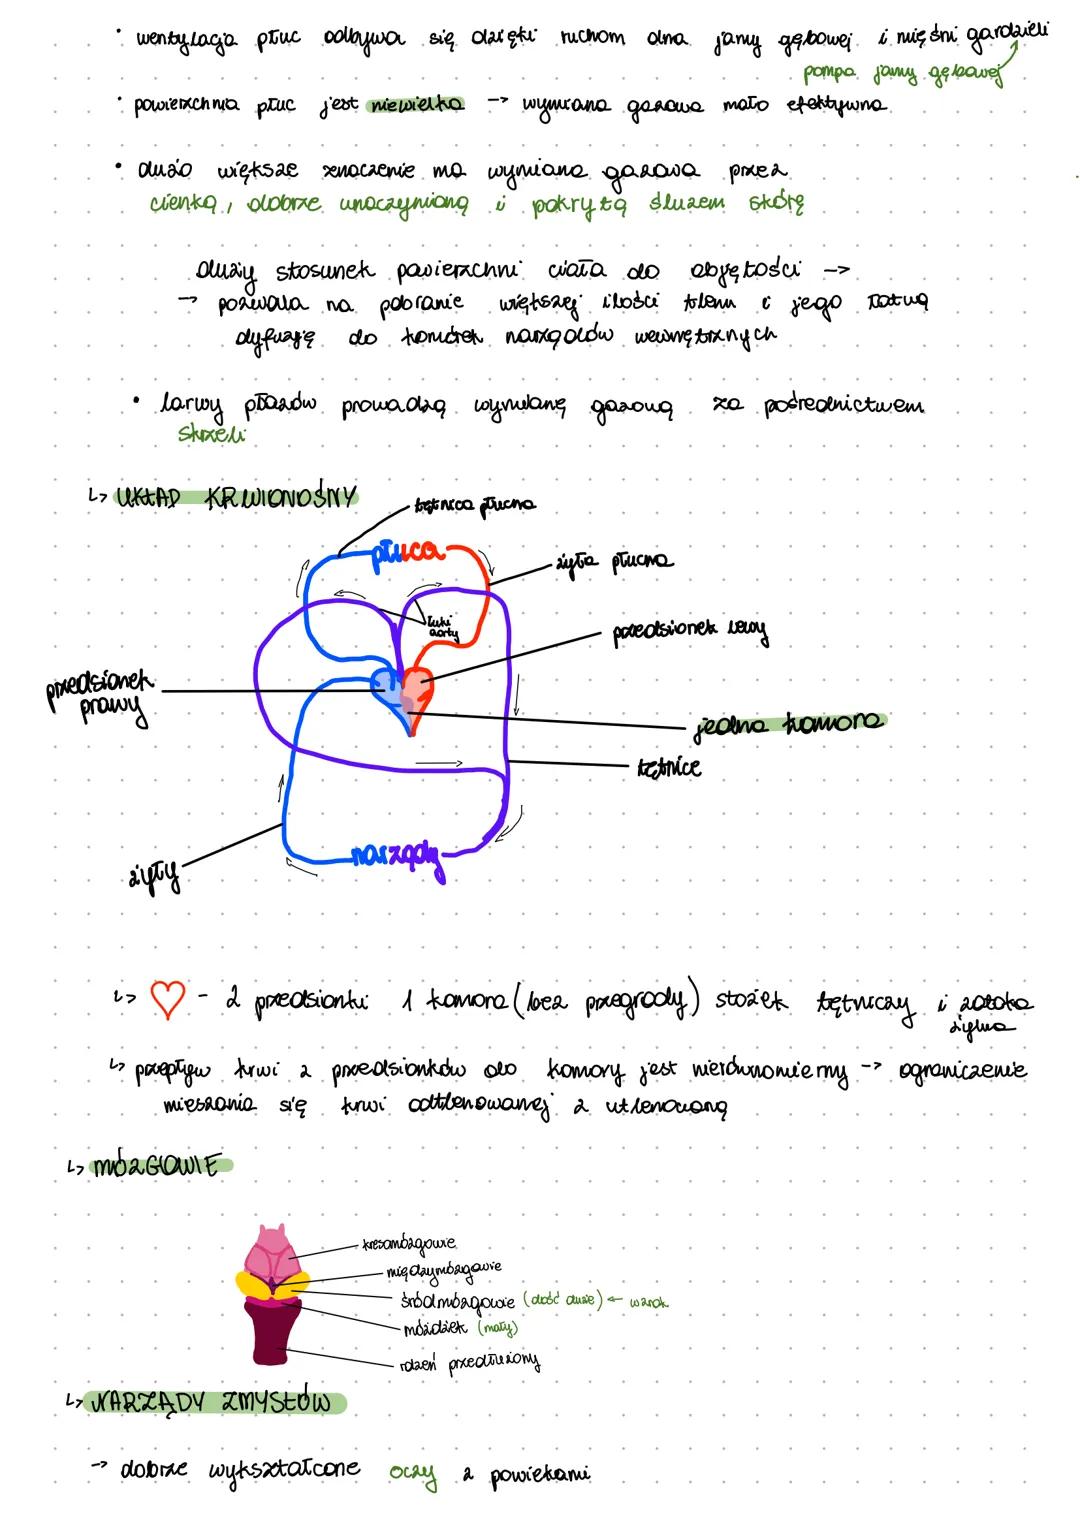 • wentylacja płuc odbywa się dzięki ruchom dna jamy gębowej i mięśni gardzieli
pompa jamy gębowej
• powierzchnia płuc jest niewielka -> wymiana gazowa mało efektywna
• dużo większe znaczenie ma wymiana gazowa przez
cienką, dobrze unaczynioną i pokrytą śluzem skórę
duży stosunek powierzchni ciała do objętości ->
-> pozwala na pobranie większej ilości tlenu i jego łatwą
dyfuzję do komórek narządów wewnętrznych
• larwy płazów prowadzą wymianę gazową za pośrednictwem
skrzeli
↳ UKŁAD KRWIONOŚNY
tętnica płucna
płuca
żyła płucna
łuki
aorty
przedsionek lewy
przedsionek
prawy
jedna komora
tętnice
narządy
żyły
↳ ♡ - 2 przedsionki 1 komora (bez przegrody) stożek tętniczy i zatoka
żylna
↳ przepływ krwi z przedsionków do komory jest nierównomierny -> ograniczenie
mieszania się krwi odtlenowanej z utlenowaną
↳ MÓZGOWIE
kresomózgowie
międzymózgowie
śródmózgowie (dość duże) ← wzrok
móżdżek (mały)
rdzeń przedłużony
↳ NARZĄDY ZMYSŁÓW
-> dobrze wykształcone oczy z powiekami